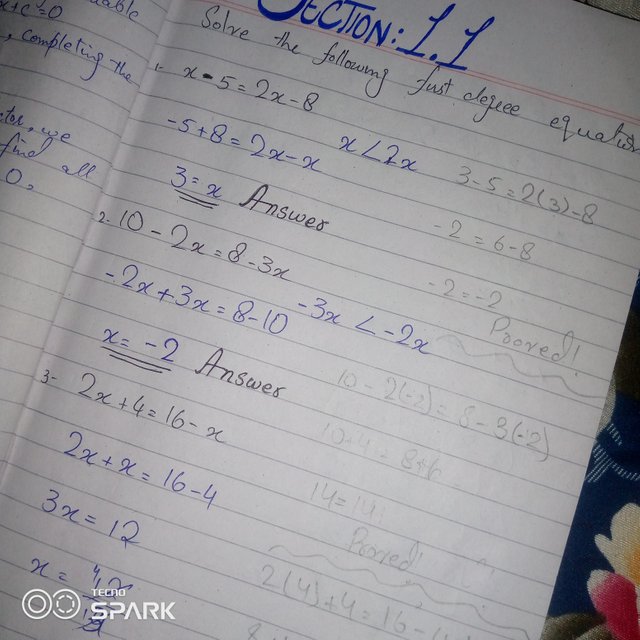 able
x+c=0
, completing the
ctor, we
find all
0.
SECTION: 1.1
Solve the following first degree equation
1. x - 5 = 2x - 8
-5+8 = 2x - x
x < 2x
3 = x Answer
3-5 = 2(3)-8
-2 = 6-8
-2 = -2
Prooved!
2. 10 - 2x = 8 - 3x
-2x + 3x = 8 - 10
-3x < -2x
x = -2 Answer
10 - 2(-2) = 8 - 3(-2)
10+4 = 8+6
14 = 14
Prooved!
3- 2x + 4 = 16 - x
2x + x = 16 - 4
3x = 12
x =
2(4)+4 = 16 -
TECNO
SPARK